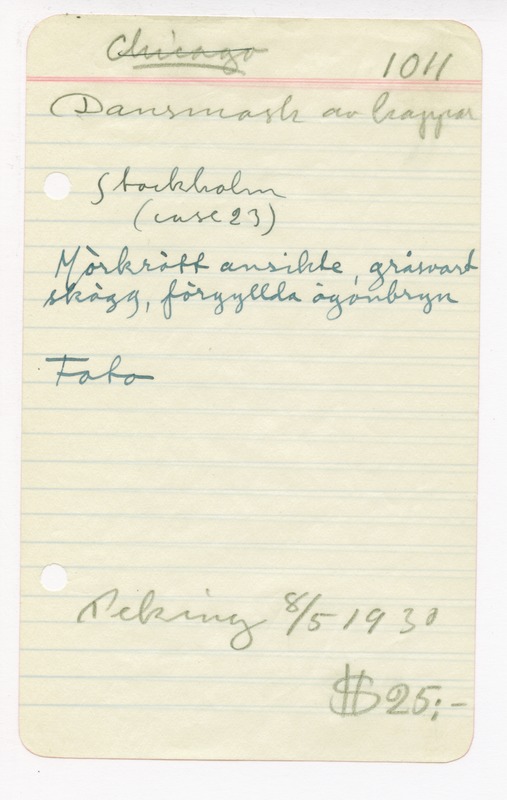 Chicago
1011
Dansmask av koppar
Stockholm
(case 23)
Mörkrött ansikte, gråsvart
skägg, förgyllda ögonbryn
Foto
Peking 8/5 1930
$25:-